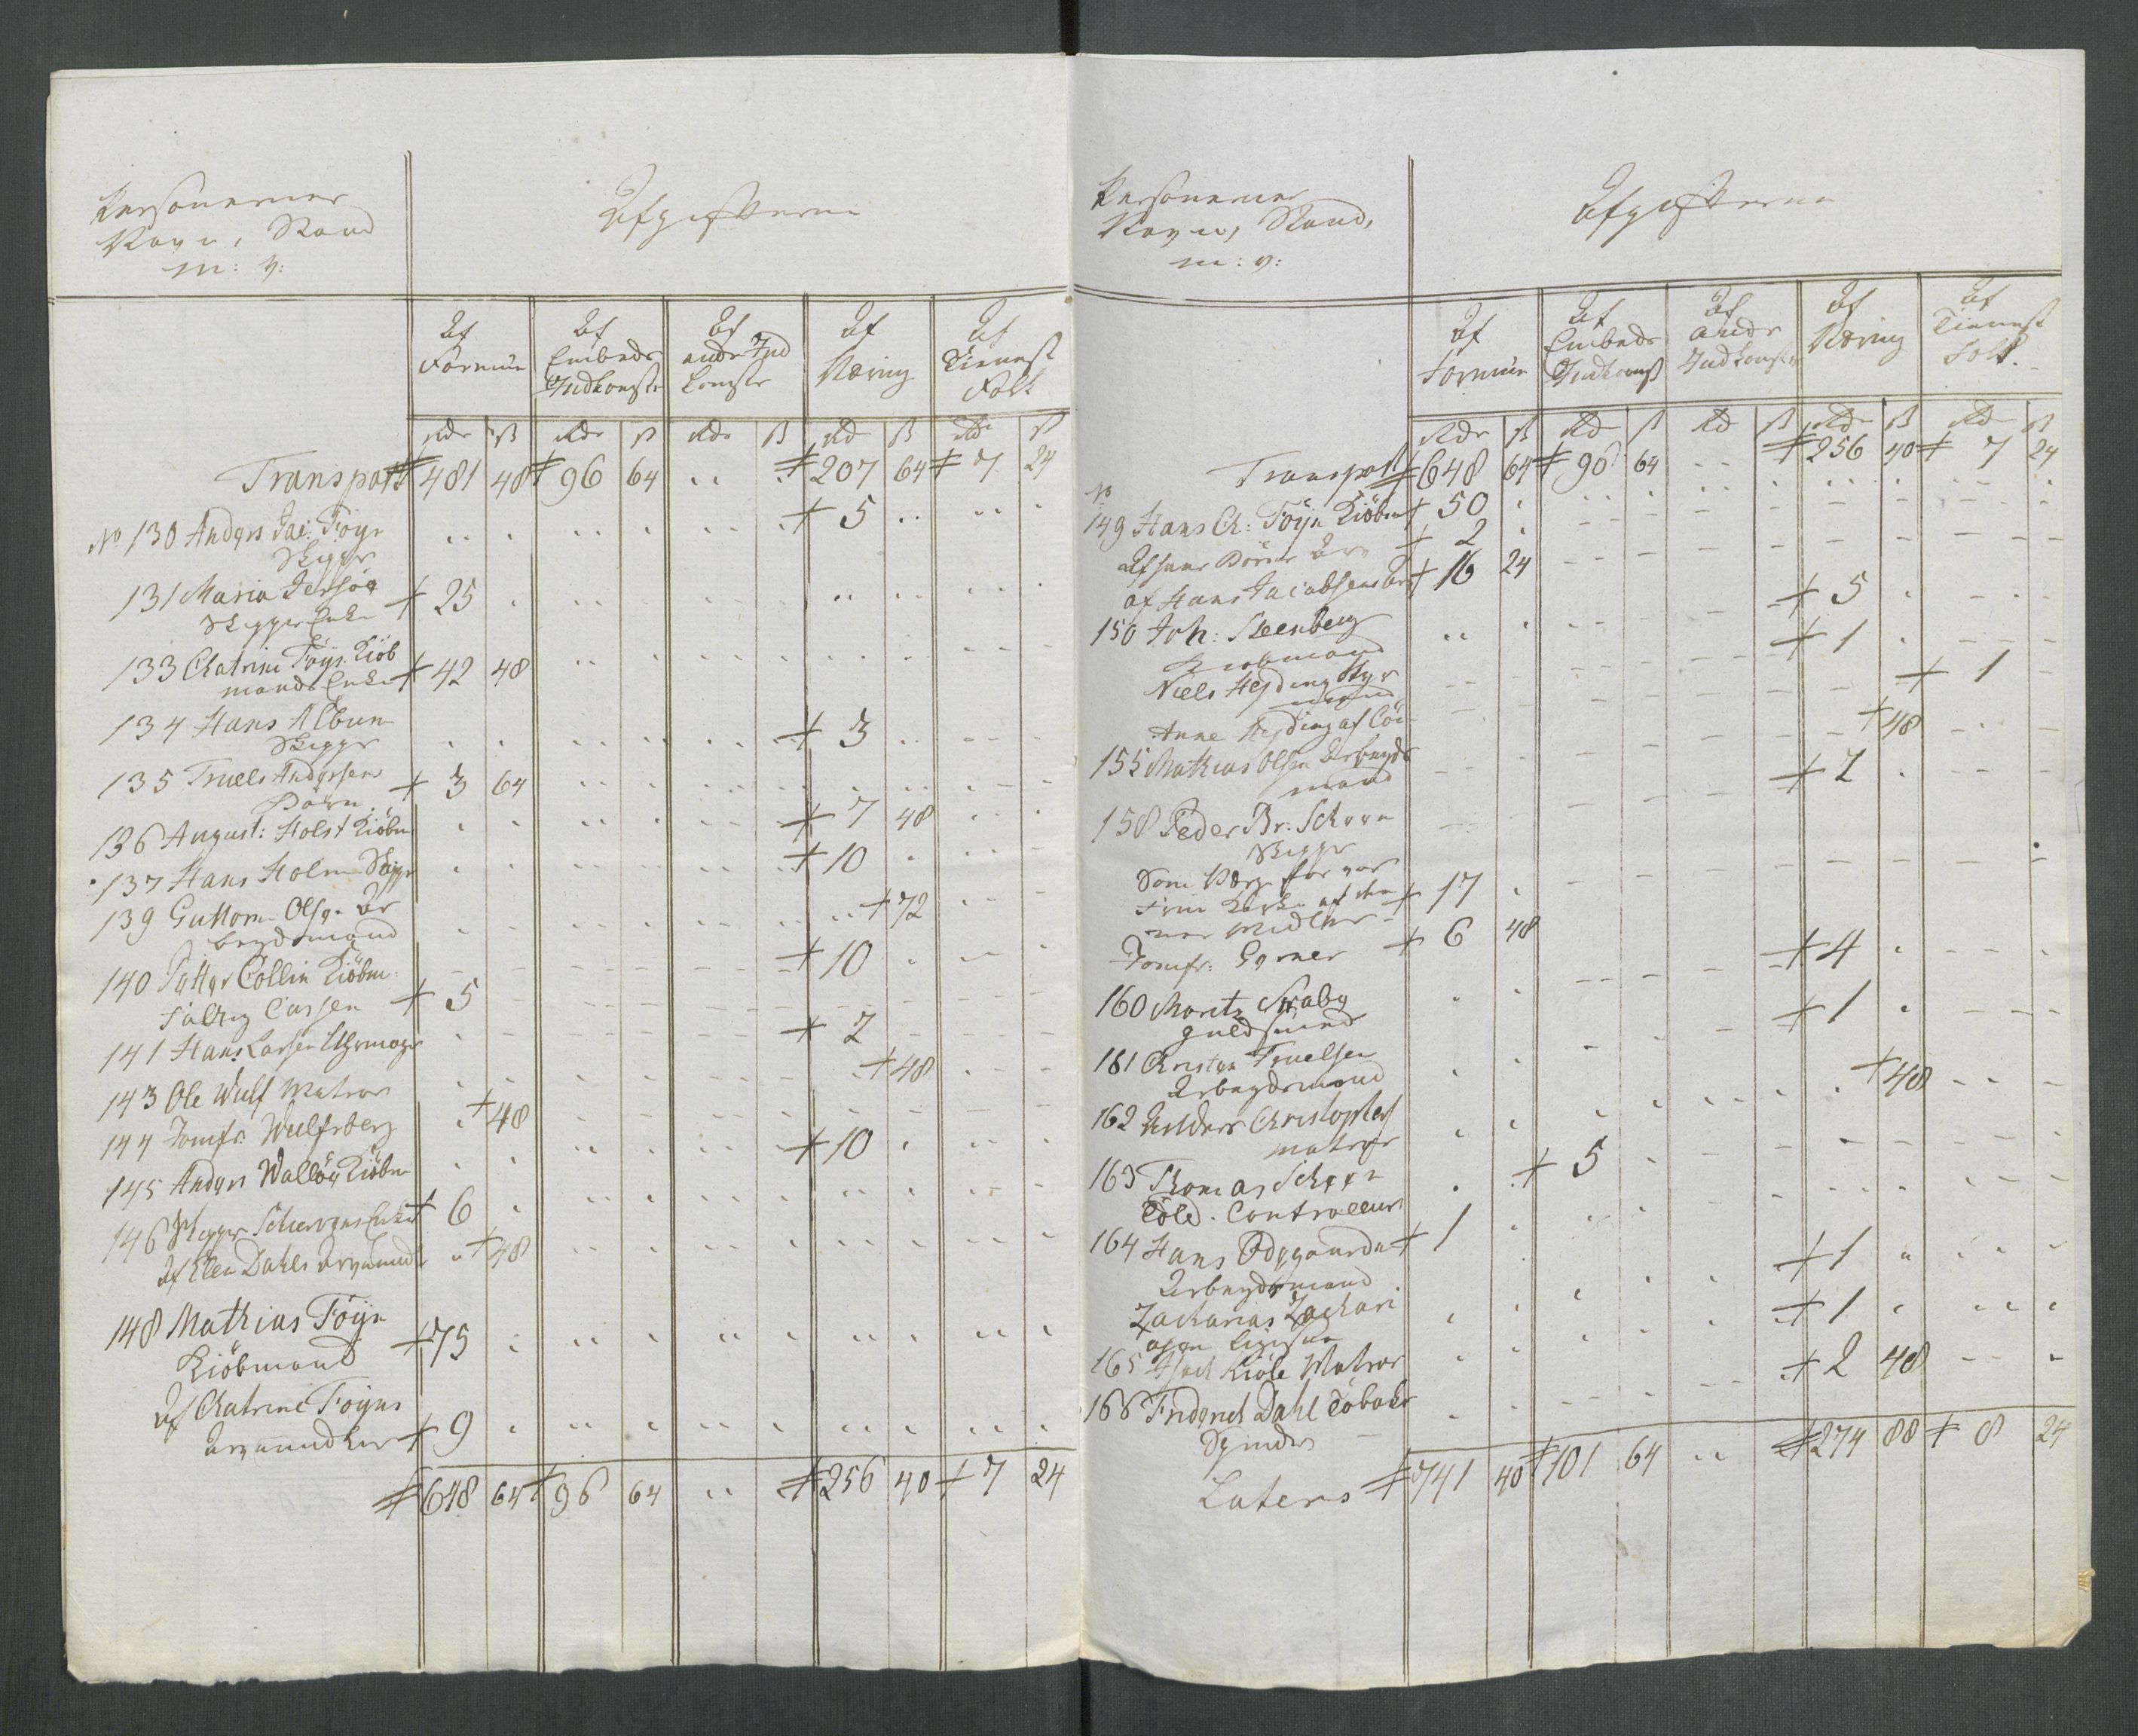 Personernes
Navn, Stand
m: v:
Afgifterne
Af Formue
Af Embeds Indkomster
Af andre Ind komster
Af Næring
Af Tieneste Folk
Rdr ß Rdr ß Rdr ß Rd ß Rd ß
Transport 481 48 96 64 " " 207 64 7 24
No 130 Anders Jac: Föyn 5
Skipper
131 Maria Jersøe 25
Skipper Enke
133 Chatrine Föyn Kiöb
mands Enke 42 48
134 Hans Album 3
Skipper
135 Truels Andersens 3 64
Börn
136 August: Holst Kiöbm 7 48
137 Hans Holm Skipper 10
139 Guttorm Olse: Ar 72
beydsmand
140 Petter Collin Kiöbm: 10
Cassen 5
141 Hans Larsen Uhrmager 2
143 Ole Wulf Matros 48
144 Jomfr: Wulfsberg 48
145 Anders Wallöe Kiöbm 10
146 Skipper Enke 6
Af Elen Dahls Arvemidler 48
148 Mathias Föyn
Kiöbmand 75
Af Chatrine Föyns
Arvemidler 9
648 64 96 64 " " 256 40 7 24
Personernes
Navn, Stand,
m: v:
Afgifterne
Af Formue
Af Embeds Indkomst
Af andre Indkomster
Af Næring
Af Tienest Folk
Rdr ß Rd ß Rd ß Rdr ß Rd ß
Transport 648 64 96 64 " " 256 40 7 24
No
149 Hans Ch: Föyn Kiöbm 50
Af hans Börns Arv 2
af Hans Jacobsens Arv 16 24
150 Joh: Steenberg 5
Kiobmand
Niels Hesding Styr 1
mand
Anne Hesding af 1
155 Mathias Olsen Arbeyds 48
mand
158 Peder Br: Scheen 2
Skipper
Som Værge for
Kirke af 17
Midler
Jomfr: Gerner 6 48
160 Moritz Straby 4
guldsmed
161 Christen Truelsen 1
Arbeydsmand
162 Anders Christophers 48
matros
163 Thomas Scheen 5
Told Controlleur
164 Hans Ödegaarden 1
Arbeydsmand
Zacharias Zachari 1
asen
165 Kiöle Matros 1
166 Friderich Dahl Tobaks 2 48
Spinder
Laters 741 40 101 64 " 274 88 8 24